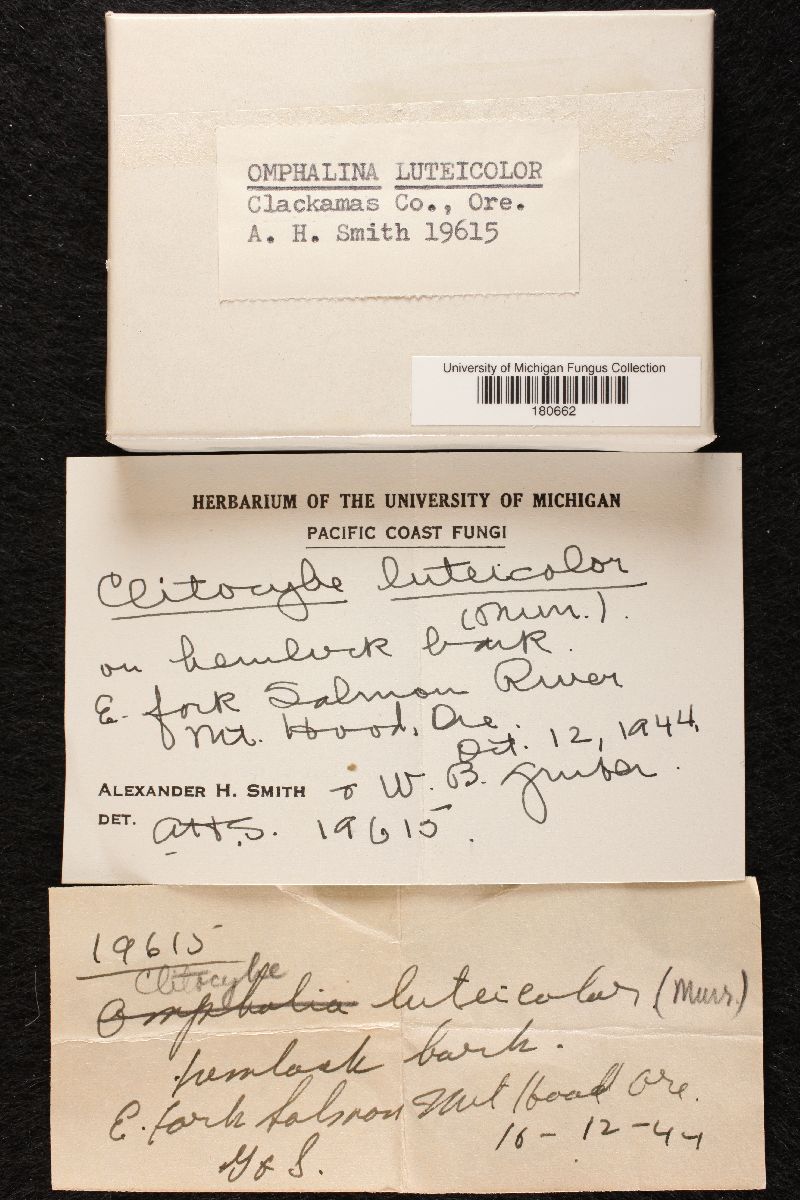 OMPHALINA LUTEICOLOR
Clackamas Co., Ore.
A. H. Smith 19615
University of Michigan Fungus Collection
180662
HERBARIUM OF THE UNIVERSITY OF MICHIGAN
PACIFIC COAST FUNGI
Clitocybe luteicolor
(Murr.).
on hemlock bark.
E. fork Salmon River
Mt. Hood, Ore.
Oct. 12, 1944.
ALEXANDER H. SMITH & W. B. Gruber.
DET. AHS. 19615.
19615
Clitocybe
Omphalia luteicolor (Murr.)
hemlock bark.
E. fork Salmon Mt Hood Ore.
10-12-44
G & S.